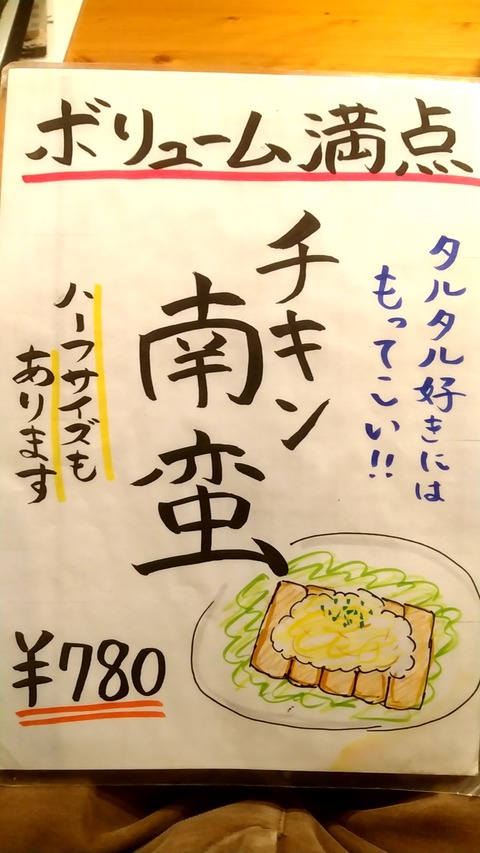 ボリューム満点
タルタル好きには
もってこい!!
チキン
南蛮
ハーフサイズも
あります
¥780